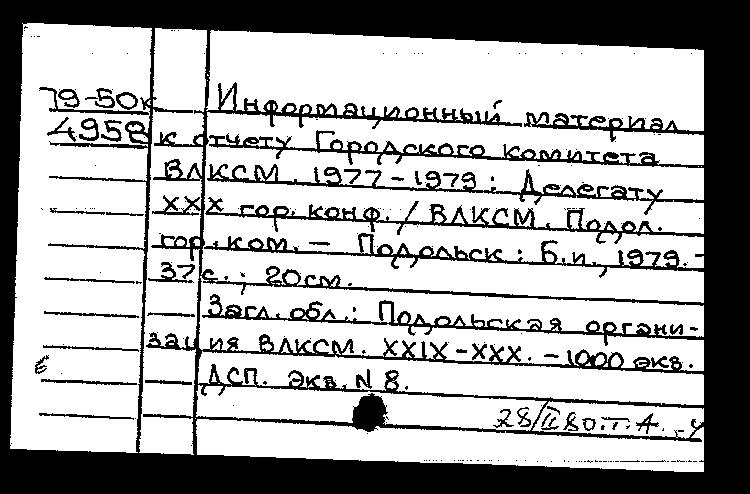 79-50к Информационный материал
4958 к отчету Городского комитета
ВЛКСМ. 1977-1979: Делегату
XXX гор. конф. / ВЛКСМ. Подол.
гор. ком. — Подольск: Б.и., 1979. -
37 с.; 20 см.
Загл. обл.: Подольская органи-
зация ВЛКСМ. XXIX-XXX. - 1000 экз.
ДСП. Экз. N 8.
28/II 80. Т. А.